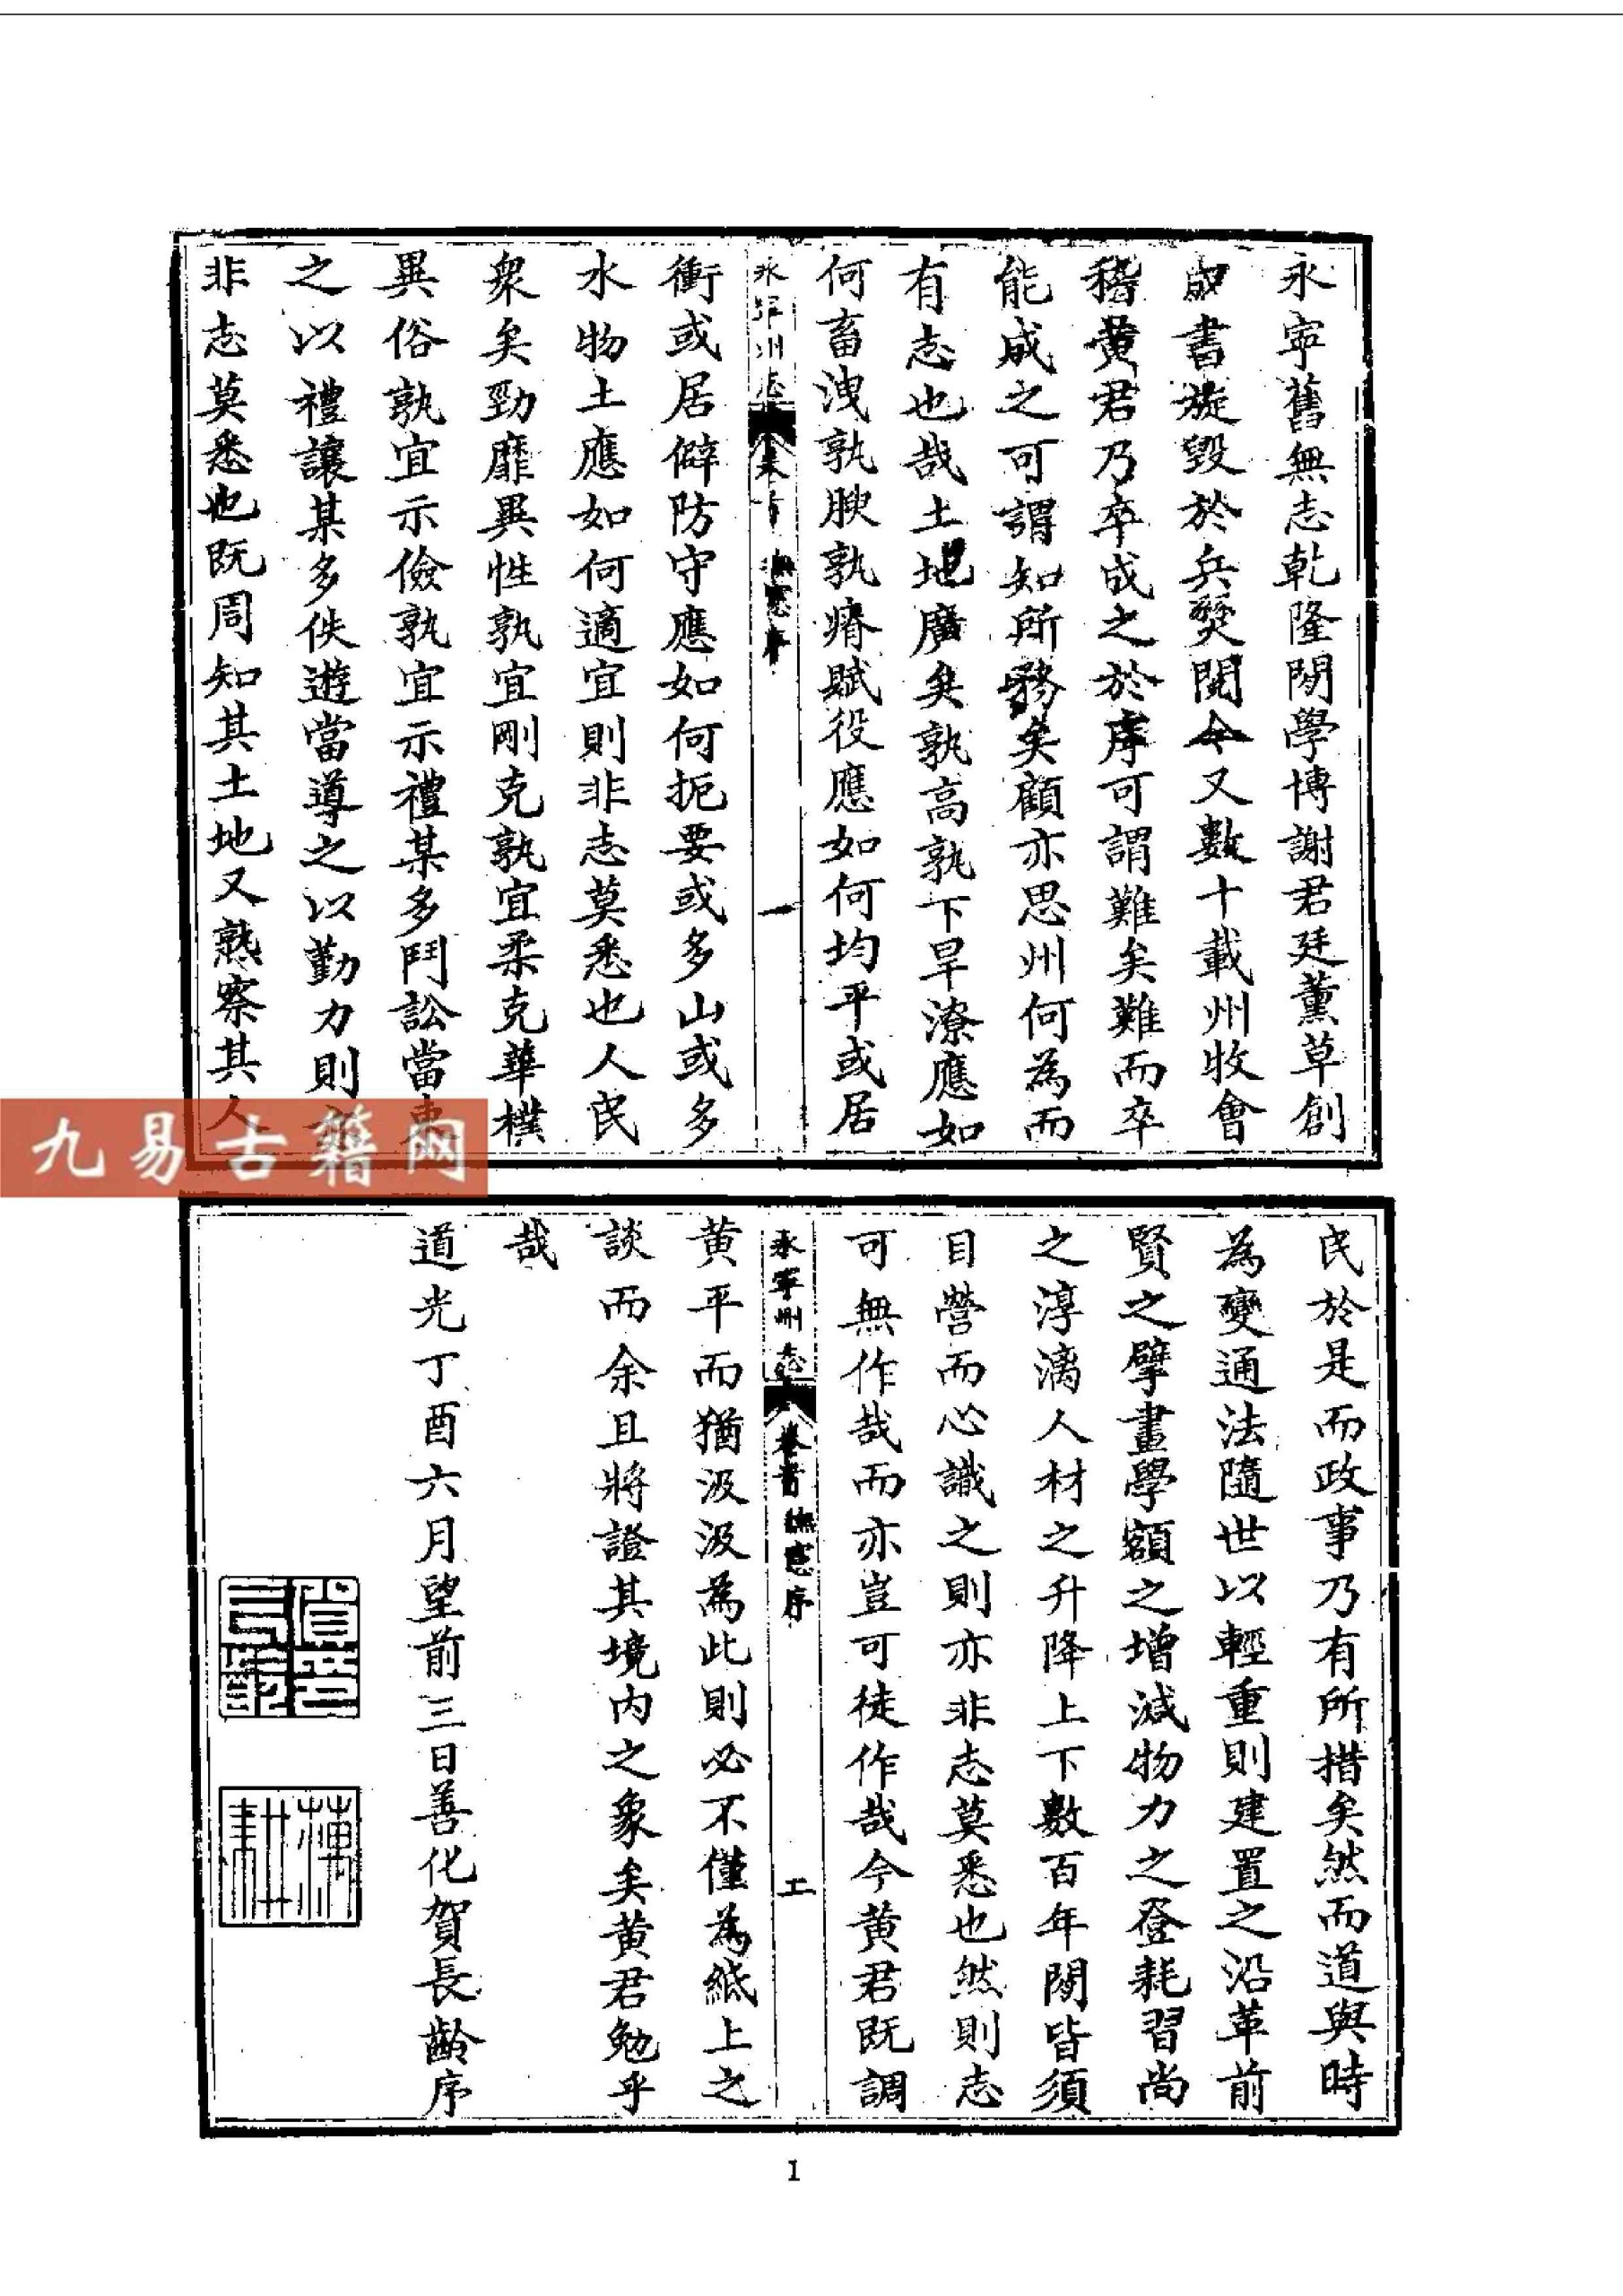 永寧舊無志乾隆閒學博謝君廷薰草創
成書旋毀於兵燹閱今又數十載州牧會
稽黃君乃卒成之於虖可謂難矣難而卒
能成之可謂知所務矣顧亦思州何為而
有志也哉土地廣矣孰高孰下旱潦應如
何畜洩孰腴孰瘠賦役應如何均平或居
永寧州志
卷首 撫憲序
一
衝或居僻防守應如何扼要或多山或多
水物土應如何適宜則非志莫悉也人民
衆矣勁靡異性孰宜剛克孰宜柔克華樸
異俗孰宜示儉孰宜示禮某多鬥訟當
之以禮讓某多佚遊當導之以勤力則
非志莫悉也既周知其土地又熟察其人
九易古籍网
民於是而政事乃有所措矣然而道與時
為變通法隨世以輕重則建置之沿革前
賢之擘畫學額之增減物力之登耗習尚
之淳漓人材之升降上下數百年閒皆須
目營而心識之則亦非志莫悉也然則志
可無作哉而亦豈可徒作哉今黃君既調
永寧州志
卷首 撫憲序
二
黃平而猶汲汲為此則必不僅為紙上之
談而余且將證其境內之象矣黃君勉乎
哉
道光丁酉六月望前三日善化賀長齡序
蓮耕
1